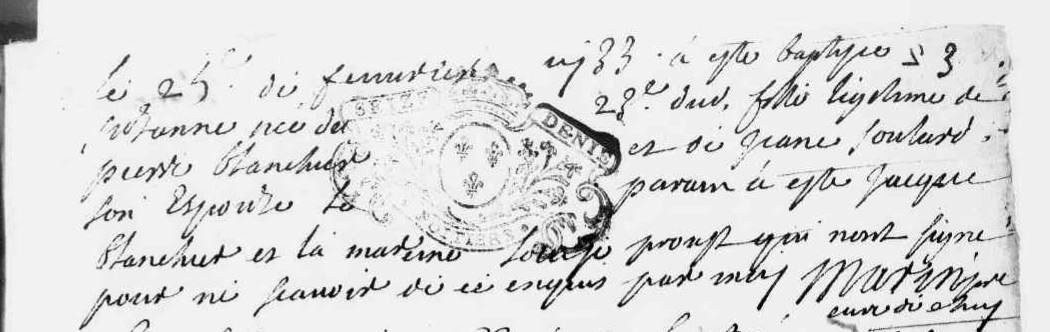 le 25e de feuurier 1733 · a este baptisee 23
suzanne née du 23e dud. fille ligitime de
pierre blanchier et de jeane soulard ·
son Espouze le parain a este jacque
blanchier et la maraine Louise proust qui nont signe
pour ne scauoir de ce enquis par moy
curé
SEIZE DENIE
POITIERS